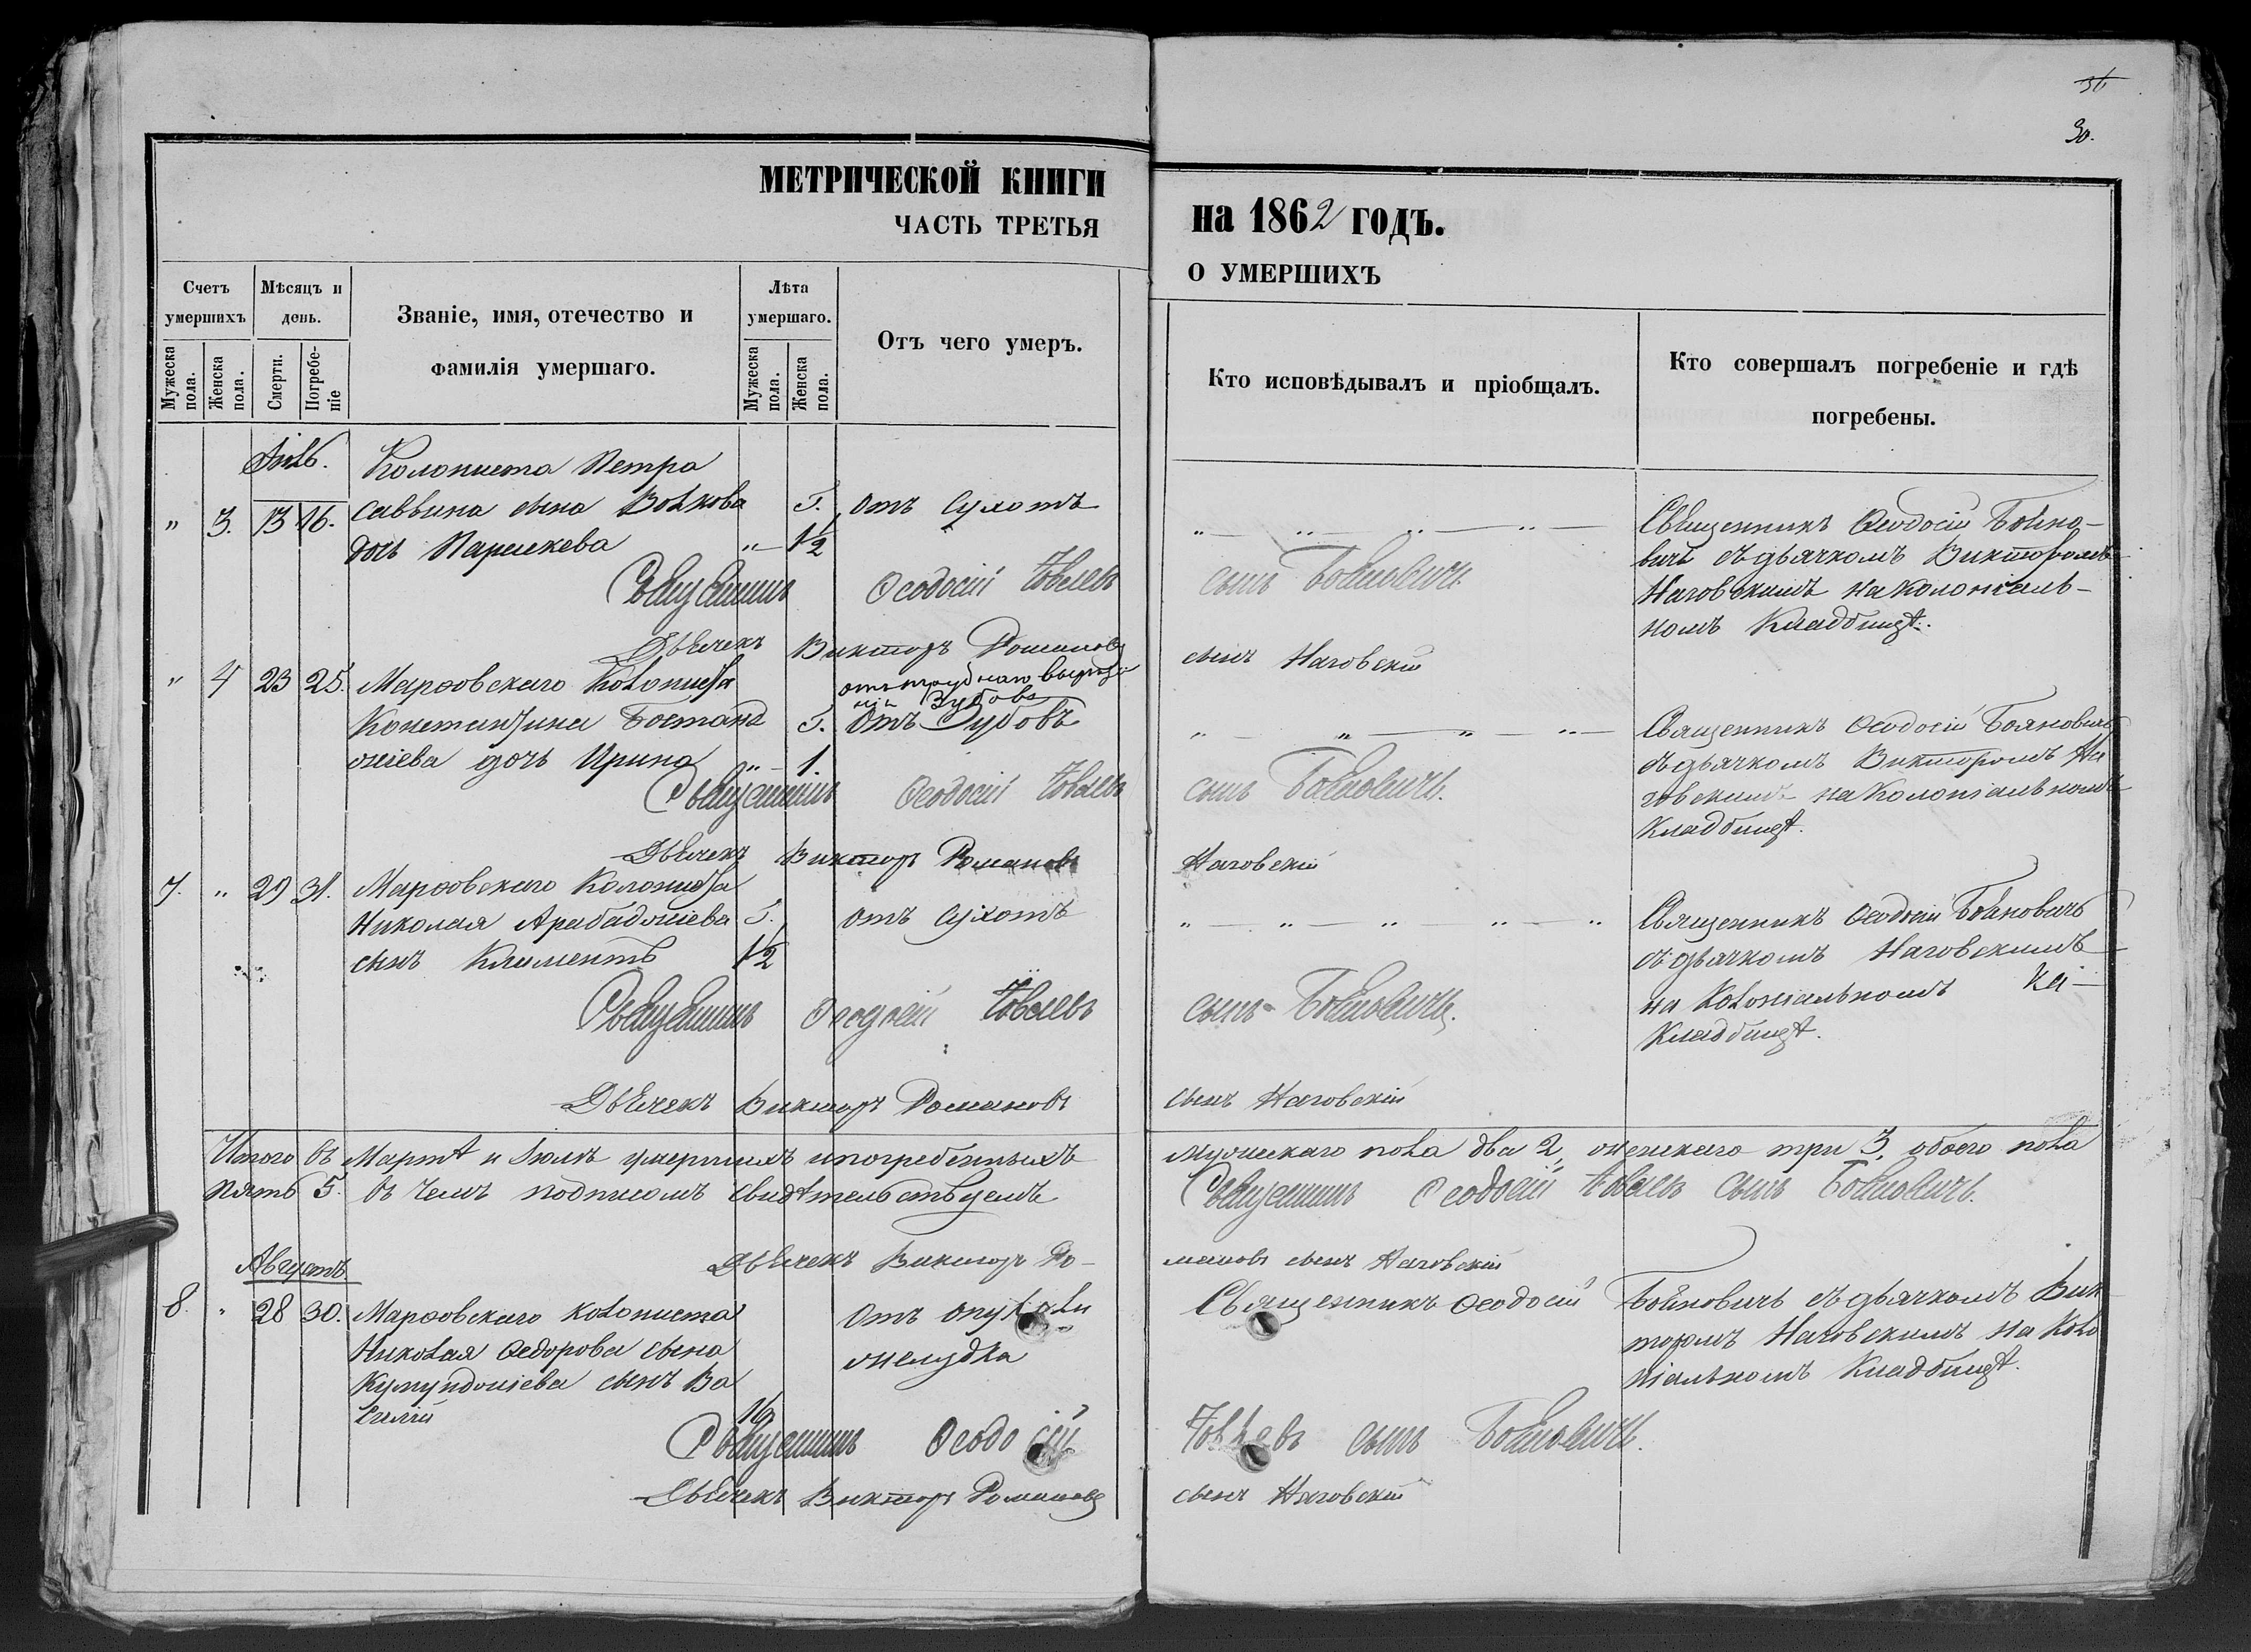 31
30.
МЕТРИЧЕСКОЙ КНИГИ
ЧАСТЬ ТРЕТЬЯ
на 1862 годъ.
О УМЕРШИХЪ
Счетъ умершихъ
Мѣсяцъ и день.
Званіе, имя, отечество и фамилія умершаго.
Лѣта умершаго.
Отъ чего умеръ.
Кто исповѣдывалъ и пріобщалъ.
Кто совершалъ погребеніе и гдѣ погребены.
Мужеска пола.
Женска пола.
Смерти.
Погребеніе
Мужеска пола.
Женска пола.
Іюль.
" 3. 13 16.
Колониста Петра
Саввина сына Волкова
дочь Параскева
Г. 1/2
отъ Сухотъ
Священникъ Ѳеодосій Бояно-
вичь съ дьячкомъ Викторомъ
Наговскимъ на колоніаль-
номъ Кладбищѣ.
Священникъ Ѳеодосій Іовлевъ сынъ Бояновичъ
Дьячекъ Викторъ Романовъ сынъ Наговскій
" 4 23 25.
Марѳовскаго Колониста
Константина Бостанд
жіева дочь Ирина
Г. 1.
отъ труднаго
Зубовъ
Отъ Зубовъ
Священникъ Ѳеодосій Бояновичъ
съ дьячкомъ Викторомъ На
говскимъ на Колоніальномъ
Кладбищѣ.
Священникъ Ѳеодосій Іовлевъ сынъ Бояновичъ.
Дьячекъ Викторъ Романовъ Наговскій
7. " 29 31.
Марѳовскаго Колониста
Николая Арабаджіева
сынъ Климентъ
Г. 1/2
отъ Сухотъ
Священникъ Ѳеодосій Бояновичъ
съ дьячкомъ Наговскимъ
на Колоніальномъ
Кладбищѣ.
Священникъ Ѳеодосій Іовлевъ сынъ Бояновичъ.
Дьячекъ Викторъ Романовъ сынъ Наговскій
Итого въ Мартѣ и Іюлѣ умершихъ и погребенныхъ мужескаго пола два 2, женскаго три 3, обоего пола
пять 5. въ чемъ подписомъ свидѣтельствуемъ Священникъ Ѳеодосій Іовлевъ сынъ Бояновичъ.
Дьячекъ Викторъ Ро- мановъ сынъ Наговскій
Августъ
8. " 28 30.
Марѳовскаго колониста
Николая Ѳедорова сына
Кумунджіева сынъ Ва
силій
16
отъ опухоли
желудка
Священникъ Ѳеодосій Бояновичъ съ дьячкомъ Вик
торомъ Наговскимъ на Коло
ніальномъ Кладбищѣ.
Священникъ Ѳеодосій Іовлевъ сынъ Бояновичъ.
Дьячекъ Викторъ Романовъ сынъ Наговскій